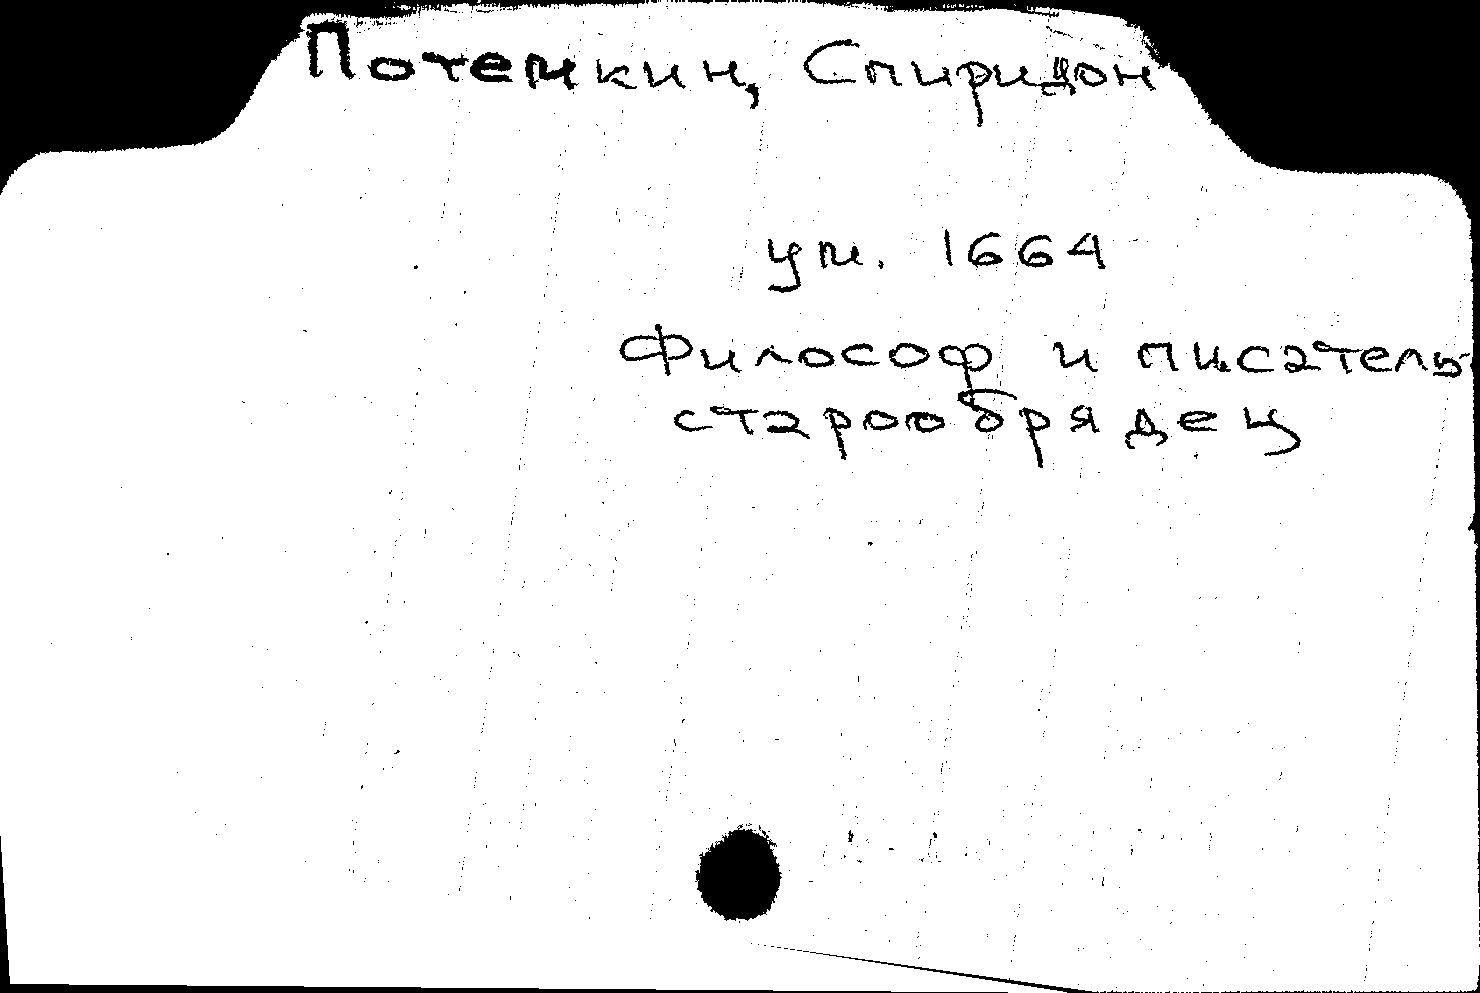 Потемкин, Спиридон
ум. 1664
Философ и писатель-
старообрядец